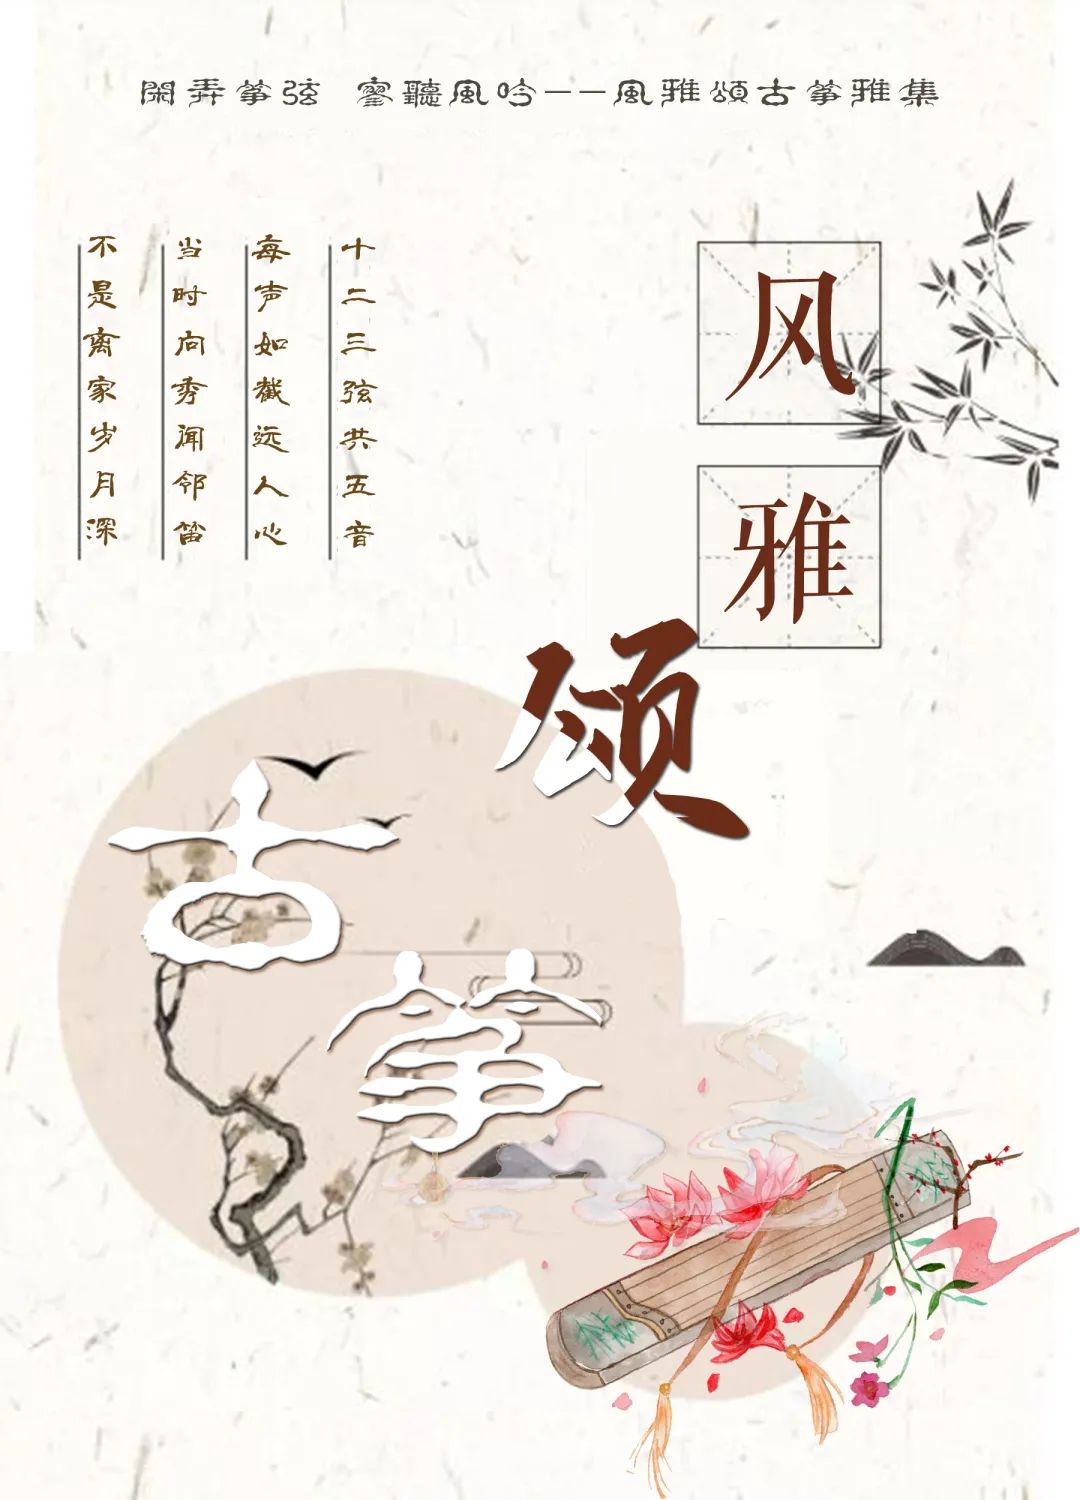 閑弄筝弦 寥聽風吟--風雅頌古筝雅集
十二三弦共五音
每声如截远人心
当时向秀闻邻笛
不是离家岁月深
风
雅
颂
古
筝